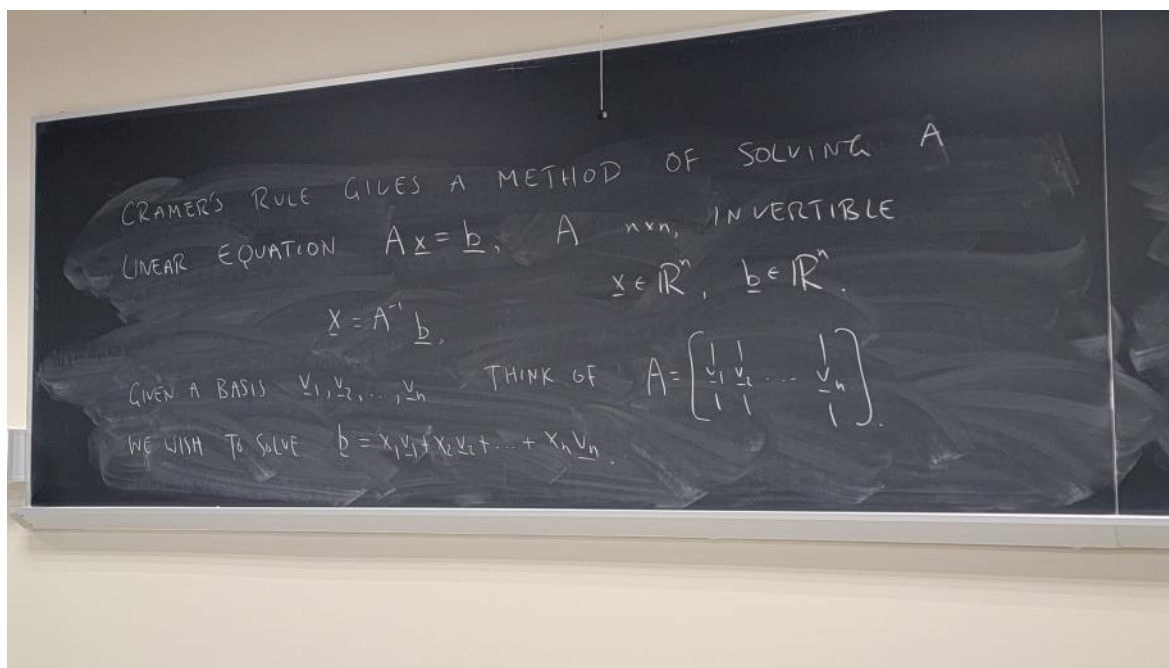 CRAMER'S RULE GIVES A METHOD OF SOLVING A
LINEAR EQUATION A x̲ = b̲, A n×n, INVERTIBLE
x̲ ∈ ℝⁿ, b̲ ∈ ℝⁿ.
x̲ = A⁻¹ b̲,
GIVEN A BASIS v̲₁, v̲₂, ..., v̲ₙ THINK OF A = [v̲₁ v̲₂ ... v̲ₙ].
WE WISH TO SOLVE b̲ = x₁v̲₁ + x₂v̲₂ + ... + xₙv̲ₙ.